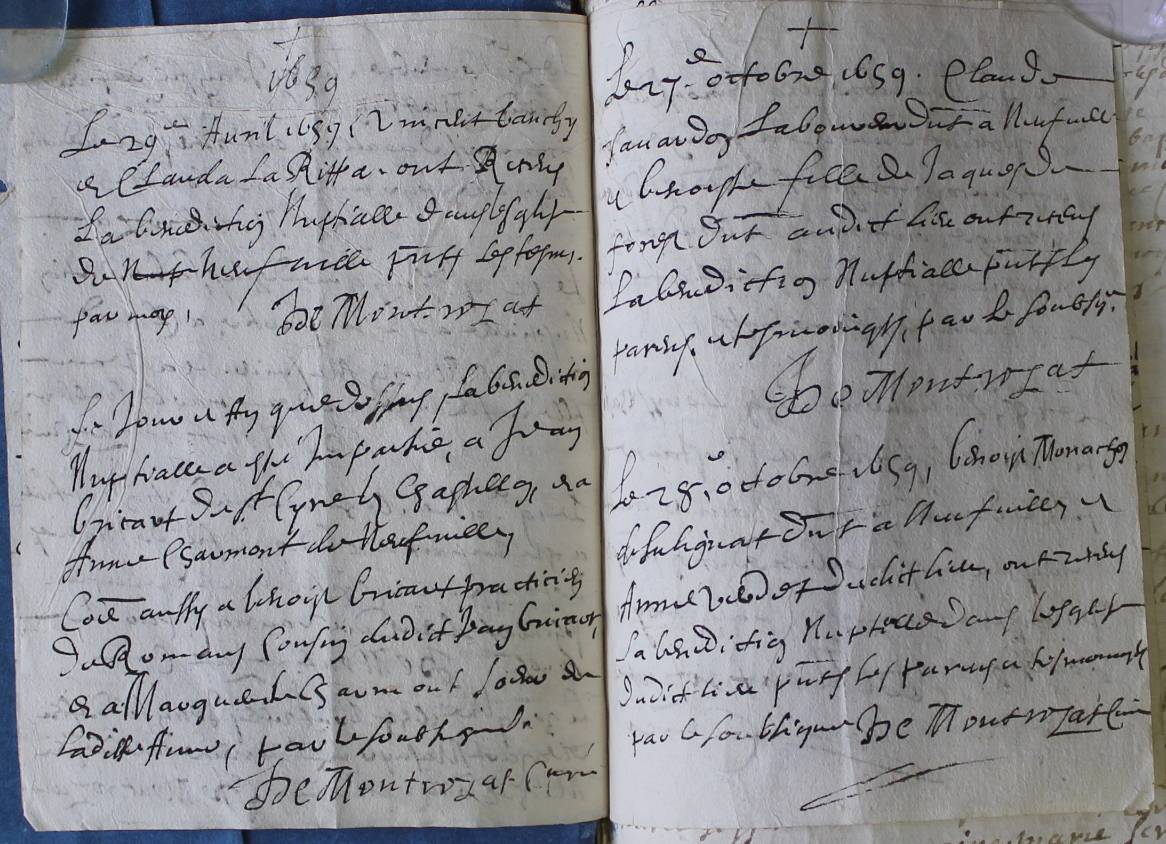 1659
Le 29e Avril 1659, Vincent banchy
et Clauda La Ritta ont Receu
La benediction Nuptialle dans lesglise
de Neufville pnts les tesm.
par moy, De Montrozat
Le Jour et An que dessus La benediction
Nuptialle a esté Impartie, a Jean
bricaut de st Cyre les Chastillon, et a
Anne Charmont de Neufville,
Coe aussy a benoist bricaut practicien
de Romans Cousin dudict Jean bricaut,
et a Marguerite Charmont soeur de
ladicte Anne, par le soubsigné.
De Montrozat Curé
Le 27e octobre 1659. Claude
Laboureur dnt a Neufville
et benoiste fille de Jaques de
forest dnt audict lieu ont receu
La benediction Nuptialle pnts les
parens, et tesmoings, par Le soubsigné
De Montrozat
Le 28e octobre 1659, benoist Monachon
de suligniat dnt a Neufville, et
Anne dudict lieu, ont receu
La benediction Nuptialle dans lesglise
dudict lieu pnts les parens et tesmoings
par le soubsigné De Montrozat Curé